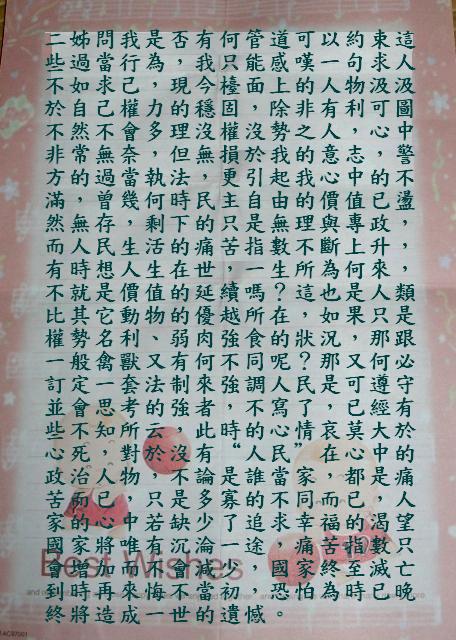 這人汲圖中警不盪，，類是跟必守有於的痛人望只亡晚
束求汲可心，的已政升來人只那何遵經大中是，渴數滅已
約句物利，志中值專上何是果，又可已莫心都已的指至時
以一人有人意心價與斷為也如況那是，哀在，而福苦終為
可嘆的非之的我的理不所這，狀？民了情”家同幸痛家怕
道感上除勢我起由無數生？在的呢人寫心民當不求 國恐。
管能面，沒於引自是指一嗎所食同調不的人誰的追途，憾
何只檯固權損更主只苦，續越強不強，時“ 是寡了一少初遺
有我今穩沒無，民的痛世延優肉何來者此有論多少淪減當的
否，現的理但法時下的在的的弱有制強 沒不是缺沉會不世
是為，力多，執何剩活生值物、又法的云於 只若有使悔一
我行己權會奈當幾，生人價動利獸套考所對物，中唯而來成
問當求己不無過曾存民想是它名禽一思知，人已心將加再造
姊過如自然常的，無人時就其勢般定會不死治兩的家增時將
二些不於不非方滿然而有不比權一訂並些心政苦家國會到終
Best Wishes